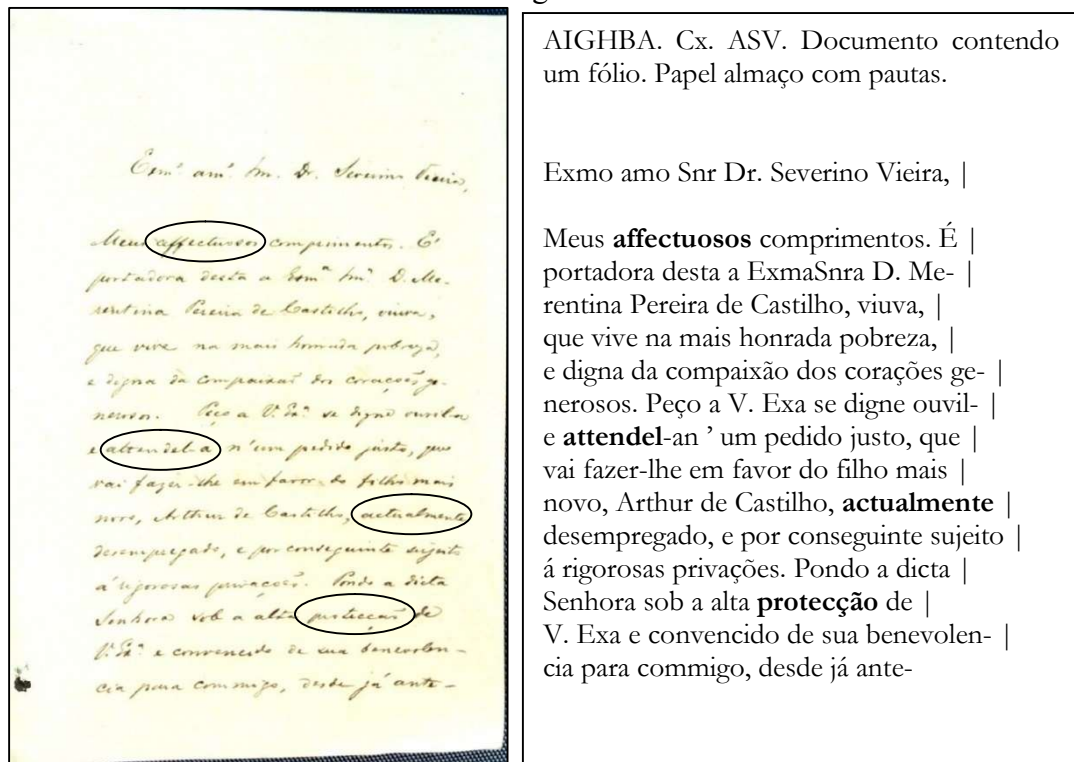 Exmº amº Snr. Dr. Severino Vieira,
Meus affectuosos comprimentos. É
portadora desta a Exmª Snrª D. Me-
rentina Pereira de Castilho, viuva,
que vive na mais honrada pobreza,
e digna da compaixão dos corações ge-
nerosos. Peço a V. Exª se digne ouvil-a
e attendel-a n'um pedido justo, que
vai fazer-lhe em favor do filho mais
novo, Arthur de Castilho, actualmente
desempregado, e por conseguinte sujeito
á rigorosas privações. Pondo a dicta
Senhora sob a alta protecção de
V. Exª e convencido de sua benevolen-
cia para commigo, desde já ante-
AIGHBA. Cx. ASV. Documento contendo
um fólio. Papel almaço com pautas.
Exmo amo Snr Dr. Severino Vieira, |
Meus affectuosos comprimentos. É |
portadora desta a ExmaSnra D. Me- |
rentina Pereira de Castilho, viuva, |
que vive na mais honrada pobreza, |
e digna da compaixão dos corações ge- |
nerosos. Peço a V. Exa se digne ouvil- |
e attendel-an ’ um pedido justo, que |
vai fazer-lhe em favor do filho mais |
novo, Arthur de Castilho, actualmente |
desempregado, e por conseguinte sujeito |
á rigorosas privações. Pondo a dicta |
Senhora sob a alta protecção de |
V. Exa e convencido de sua benevolen- |
cia para commigo, desde já ante-